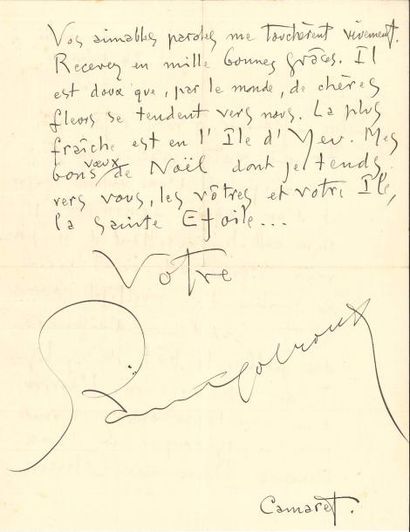 Vos aimables paroles me touchèrent vivement.
Recevez en mille bonnes grâces. Il
est doux que, par le monde, de chères
fleurs se tendent vers nous. La plus
fraîche est en l'Ile d'Yeu. Mes
bons vœux de Noël dont je tends,
vers vous, les vôtres et votre Ile,
la sainte Etoile...
Votre
Saint-Pol-Roux
Camaret.